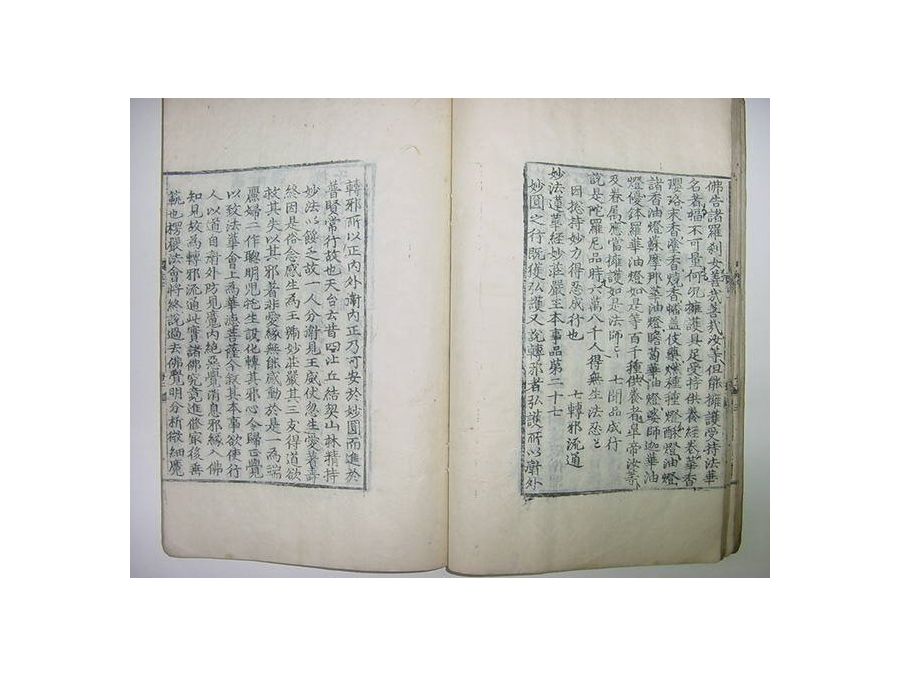 佛告諸羅刹女善哉善哉汝等但能擁護受持法華
名者福不可量何况擁護具足受持供養經卷華香
瓔珞末香塗香燒香幡蓋伎樂燃種種燈酥燈油燈
諸香油燈蘇摩那華油燈瞻蔔華油燈婆師迦華油
燈優鉢羅華油燈如是等百千種供養者皐帝汝等
及眷属應當擁護如是法師
七聞品成行
說是陀羅尼品時六萬八千人得無生法忍
因捴持妙力得忍成行也
七轉邪流通
妙法蓮華經妙莊嚴王本事品第二十七
妙圓之行既獲弘護又說轉邪者弘護所以衛外
轉邪所以正內外衛內正乃可安於妙圓而進於
普賢常行故也天台云昔四比丘結契山林精持
妙法以餒乏故一人分衛見王威伏忽生愛著壽
終因是俗念感生爲王號妙莊嚴其三支得道欲
救其失以其邪著非愛緣無能感動於是一爲端
麗婦二作聰明児託生設化轉其邪心令歸正覺
以致法華會上爲華德菩薩今叙其本事欲使行
人以道自衛外防見魔內絶惡覺消息邪緣入佛
知見故爲轉邪流通此實諸佛究竟進修家後垂
範也楞嚴法會將終說過去佛覺明分析微細魔